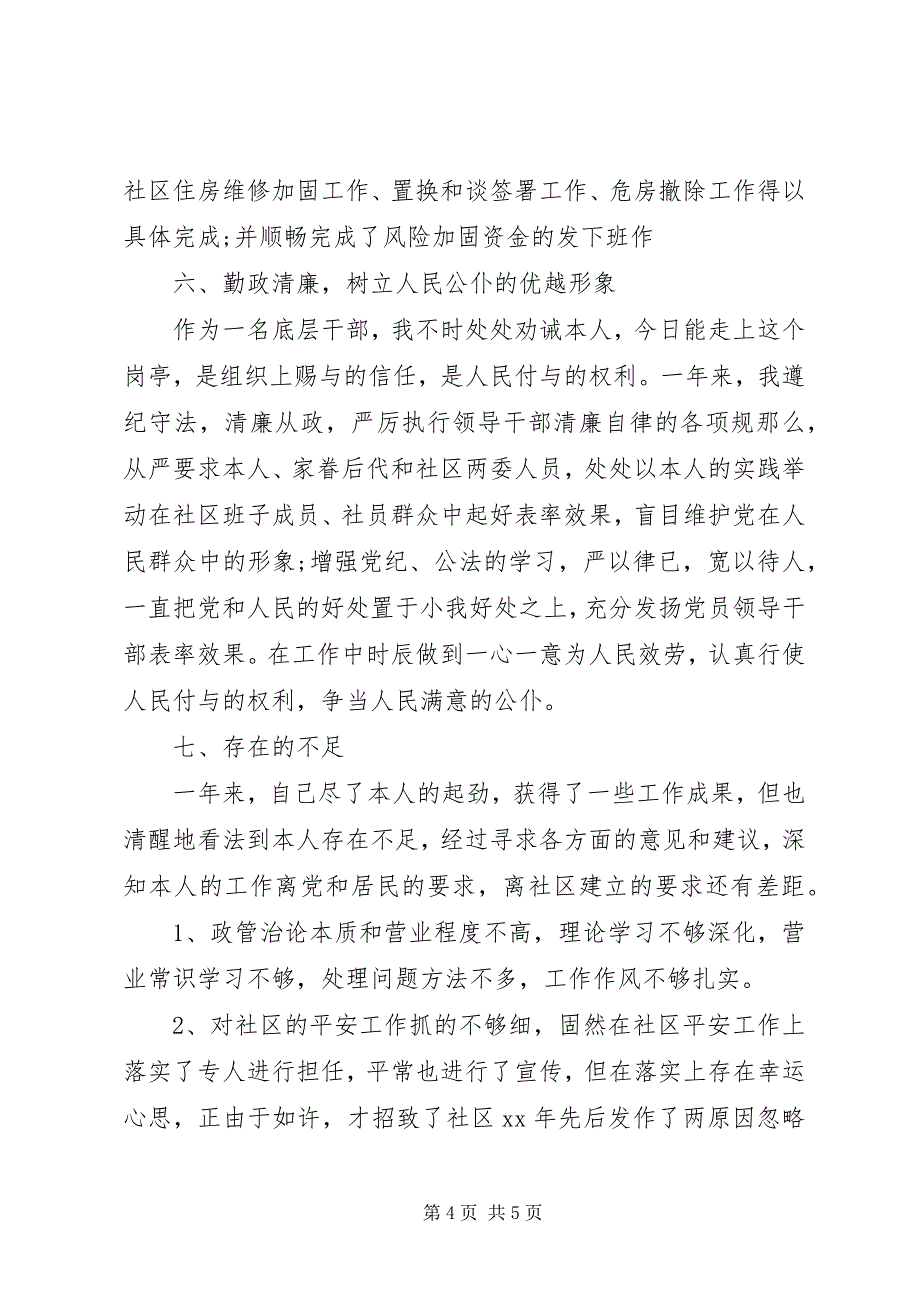 社区住房维修加固工作、置换和谈签署工作、危房撤除工作得以
具体完成;并顺畅完成了风险加固资金的发下班作
六、勤政清廉，树立人民公仆的优越形象
作为一名底层干部，我不时处处劝诫本人，今日能走上这个
岗亭，是组织上赐与的信任，是人民付与的权利。一年来，我遵
纪守法，清廉从政，严厉执行领导干部清廉自律的各项规那么，
从严要求本人、家眷后代和社区两委人员，处处以本人的实践举
动在社区班子成员、社员群众中起好表率效果，盲目维护党在人
民群众中的形象;增强党纪、公法的学习，严以律已，宽以待人，
一直把党和人民的好处置于小我好处之上，充分发扬党员领导干
部表率效果。在工作中时辰做到一心一意为人民效劳，认真行使
人民付与的权利，争当人民满意的公仆。
七、存在的不足
一年来，自己尽了本人的起劲，获得了一些工作成果，但也
清醒地看法到本人存在不足，经过寻求各方面的意见和建议，深
知本人的工作离党和居民的要求，离社区建立的要求还有差距。
1、政管治论本质和营业程度不高，理论学习不够深化，营
业常识学习不够，处理问题方法不多，工作作风不够扎实。
2、对社区的平安工作抓的不够细，固然在社区平安工作上
落实了专人进行担任，平常也进行了宣传，但在落实上存在幸运
心思，正由于如许，才招致了社区 xx 年先后发作了两原因忽略
第 4 页 共 5 页